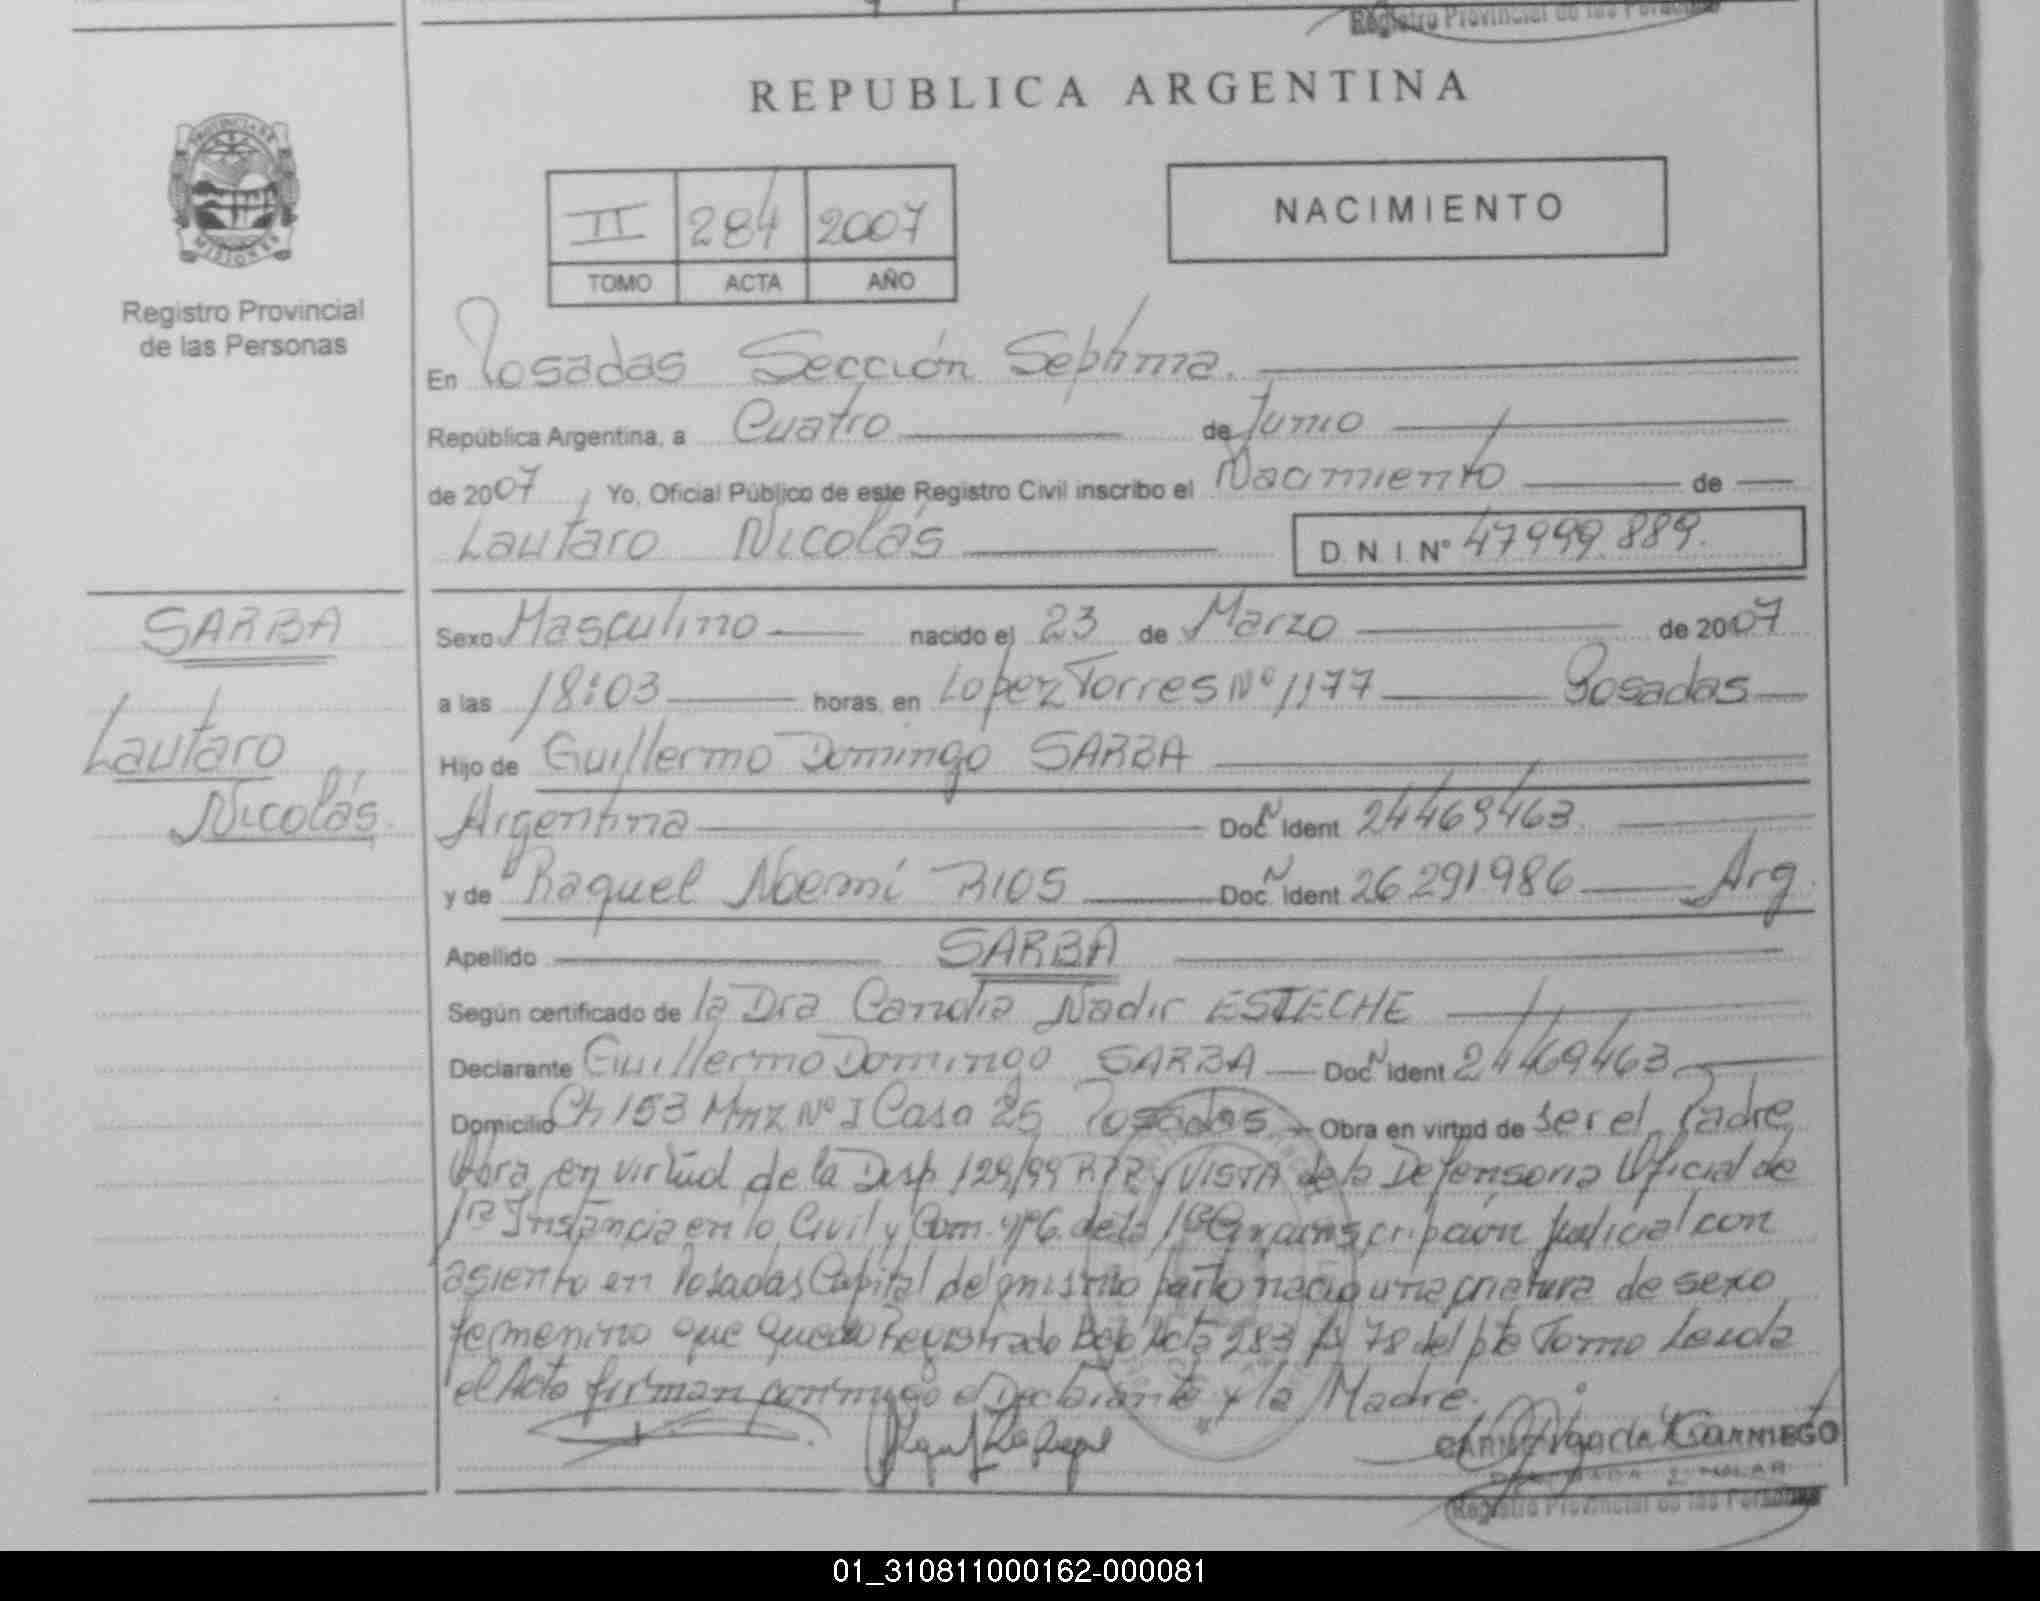 Registro Provincial de las Personas
REPUBLICA ARGENTINA
PROVINCIA DE
MISIONES
Registro Provincial
de las Personas
II 284 2007
TOMO ACTA AÑO
NACIMIENTO
En Posadas Sección Séptima.
República Argentina, a Cuatro de Junio
de 2007, Yo, Oficial Público de este Registro Civil inscribo el Nacimiento de
Lautaro Nicolás D.N.I.Nº 47999.889.
SARBA
Lautaro
Nicolás
Sexo Masculino nacido el 23 de Marzo de 2007
a las 18:03 horas, en Lopez Torres Nº 1177 Posadas
Hijo de Guillermo Domingo SARBA
Argentina Doc. Ident 24469463.
y de Raquel Noemí RIOS Doc. Ident 26.291.986 Arg.
Apellido SARBA
Según certificado de la Dra Nadir ESTECHE
Declarante Guillermo Domingo SARBA Doc. Ident 24469463
Domicilio Ch 153 Mnz Nº I Casa 25 Posadas Obra en virtud de ser el Padre
Obra en virtud de la Disp 129/99 y VISTA de la Defensoria Oficial de
1ra Instancia en lo Civil y Com. Nº6 de la 1ra Circunscripción Judicial con
asiento en Posadas Capital del mismo parto nacio una criatura de sexo
femenino que quedo Registrado Bajo Acta 283 Fº 78 del pte Tomo Leida
el Acta firman conmigo el Declarante y la Madre.
GARRIEGO
Registro Provincial de las Personas
01_310811000162-000081